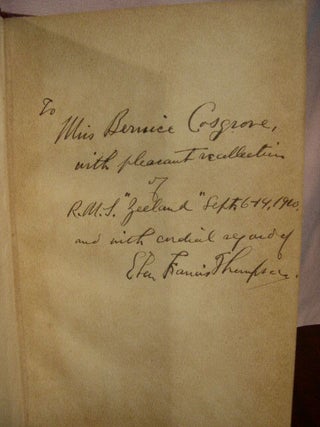 To
Miss Bernice Cosgrove,
with pleasant recollection
of
R.M.S. "Zeeland" Sept. 6-14, 1910,
and with cordial regard of
Eben Francis Thompson.